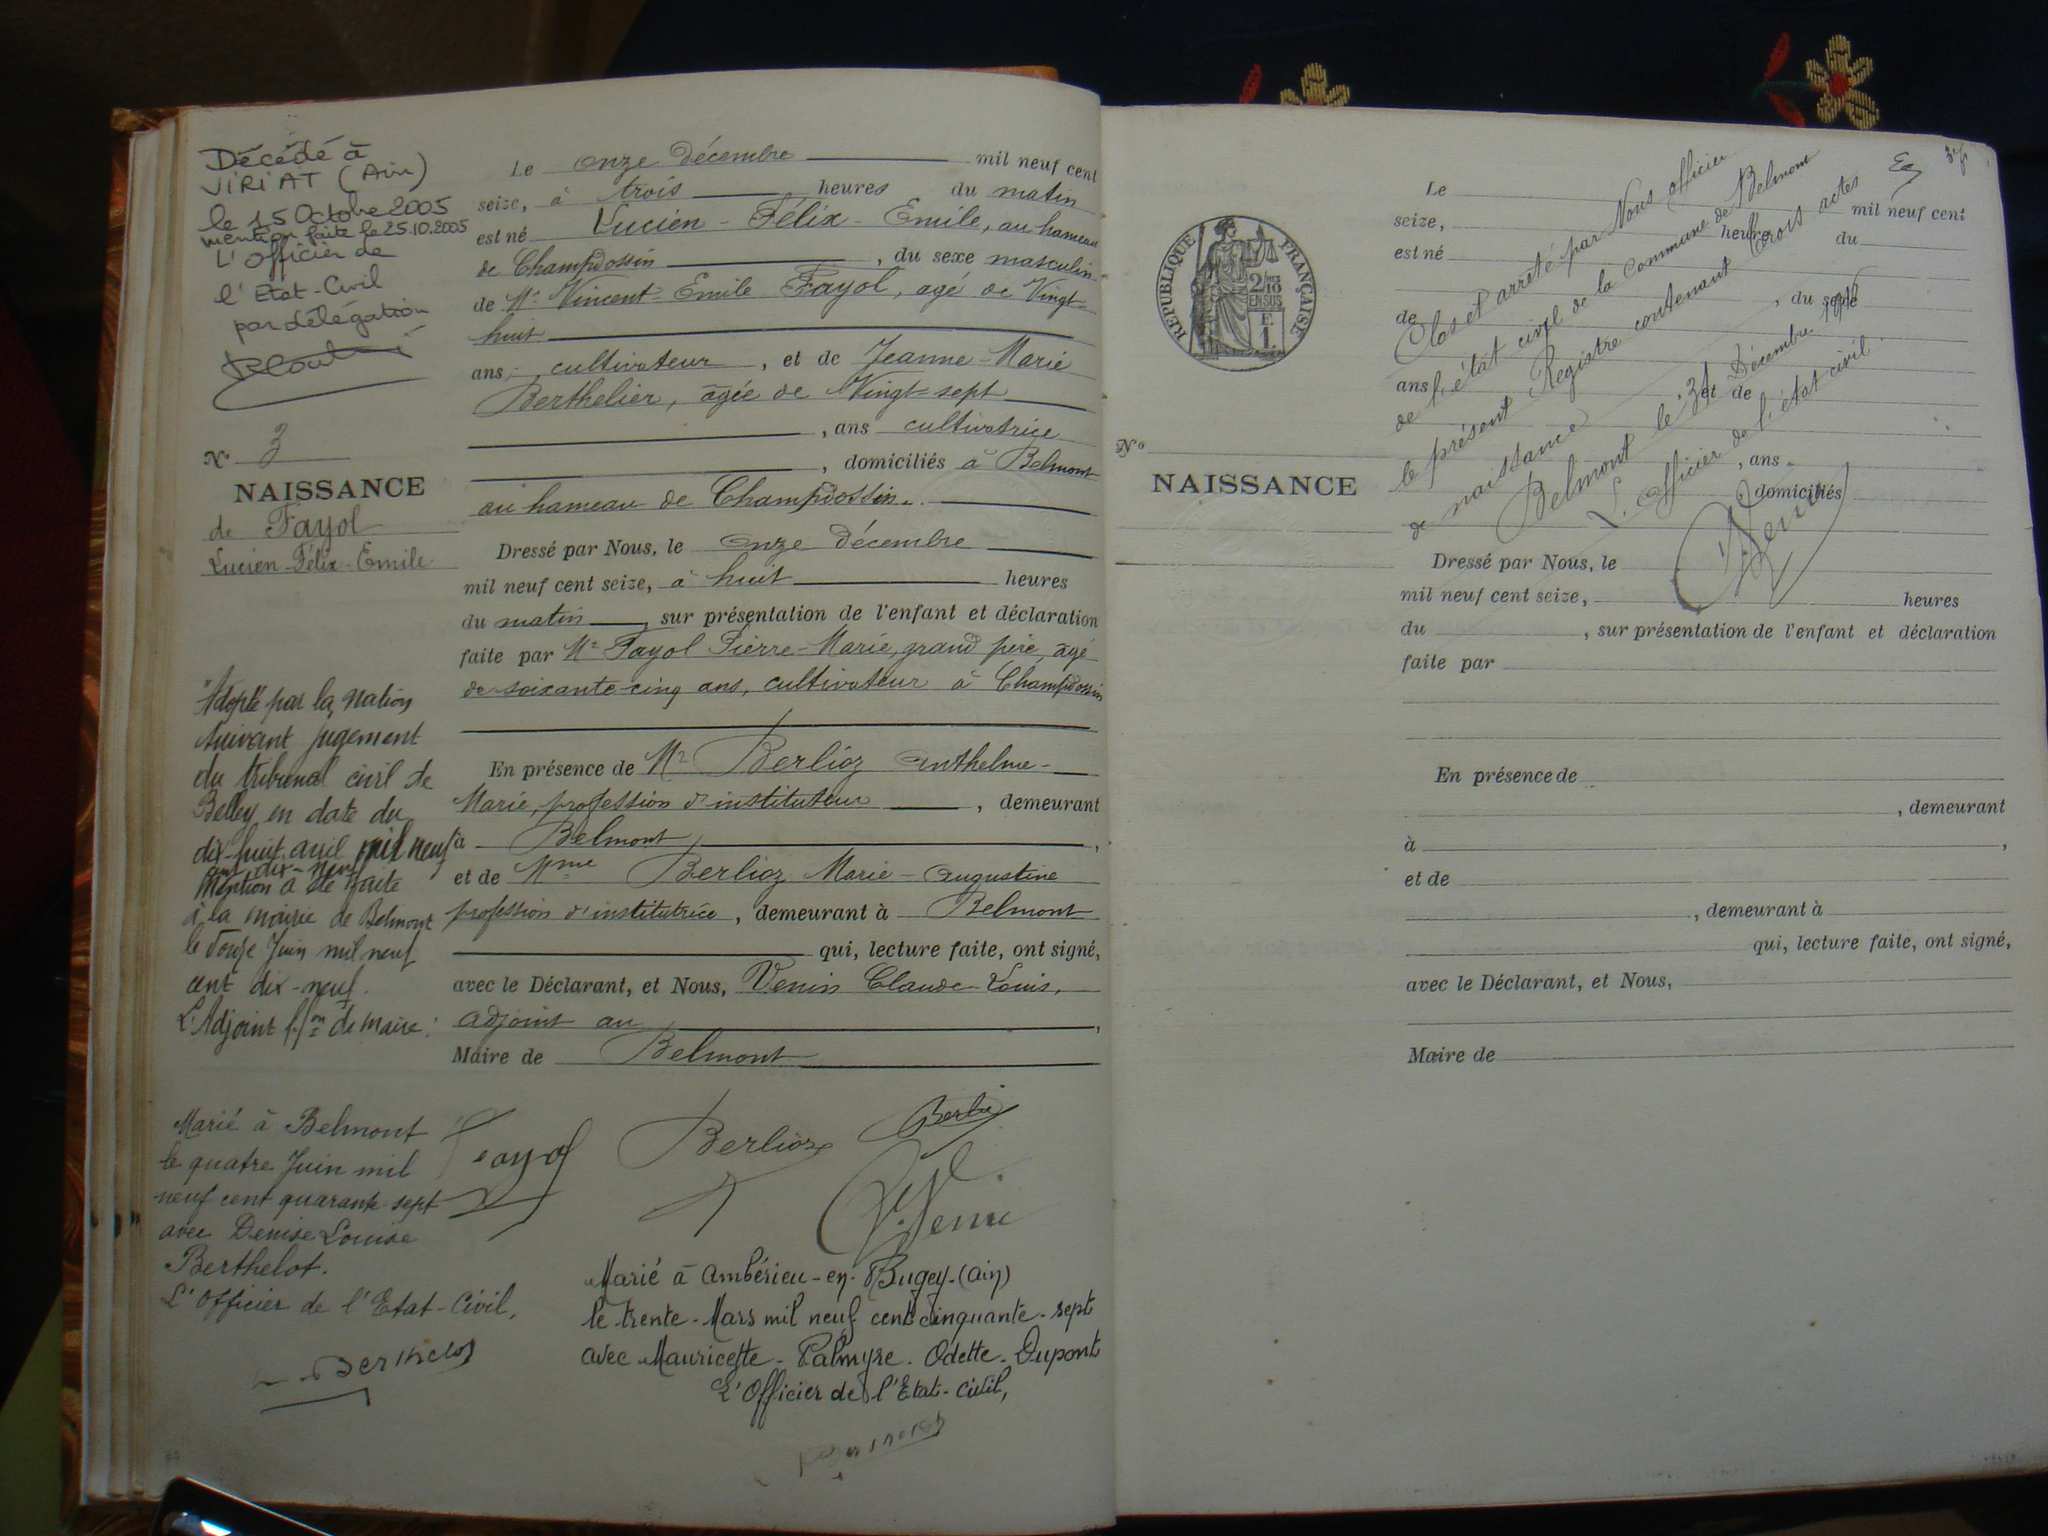 Décédé à
VIRIAT (Ain)
le 15 Octobre 2005
mention faite le 25.10.2005
L'Officier de
l'Etat-Civil
par délégation
N° 3
NAISSANCE
de Fayol
Lucien-Félix-Emile
"Adopté" par la Nation
suivant jugement
du tribunal civil de
Belley en date du
dix-huit avril mil neuf
cent dix-neuf
Mention a été faite
à la mairie de Belmont
le douze Juin mil neuf
cent dix-neuf.
L'Adjoint f. fon de Maire :
Marié à Belmont
le quatre Juin mil
neuf cent quarante-sept
avec Denise Louise
Berthelot.
L'Officier de l'Etat-Civil,
Le onze décembre mil neuf cent
seize, à trois heures du matin
est né Lucien-Félix-Emile, au hameau
de Champdossin, du sexe masculin
de Mr Vincent-Emile Fayol, agé de Vingt-
huit
ans, cultivateur, et de Jeanne-Marie
Berthelier, agée de Vingt-sept
, ans cultivatrice
, domiciliés à Belmont
au hameau de Champdossin.
Dressé par Nous, le onze décembre
mil neuf cent seize, à huit heures
du matin, sur présentation de l'enfant et déclaration
faite par Mr Fayol Pierre-Marie, grand père, âgé
de soixante-cinq ans, cultivateur à Champdossin
En présence de Mr Berlioz Anthelme-
Marie, profession d'instituteur, demeurant
à Belmont,
et de Mme Berlioz Marie-Augustine
profession d'institutrice, demeurant à Belmont
qui, lecture faite, ont signé,
avec le Déclarant, et Nous, Venin Claude-Louis,
adjoint au,
Maire de Belmont
Fayol Berlioz
Marié à Ambérieu-en-Bugey-(Ain)
le trente-Mars mil neuf cent cinquante-sept
avec Mauricette-Palmyre-Odette-Dupont
L'Officier de l'Etat-Civil,
RÉPUBLIQUE FRANÇAISE
2/10
EN SUS
E.
1.
N°
NAISSANCE
Clos et arrêté par Nous officier
de l'état civil de la Commune de Belmont
le présent Registre contenant trois actes
de naissance
Belmont le 31 Décembre 1916
L'officier de l'état civil
Le mil neuf cent
seize, heures du
est né
, du sexe
de
ans, et de
, ans
, domiciliés
Dressé par Nous, le
mil neuf cent seize, heures
du, sur présentation de l'enfant et déclaration
faite par
En présence de
, demeurant
à,
et de
, demeurant à
qui, lecture faite, ont signé,
avec le Déclarant, et Nous,
Maire de